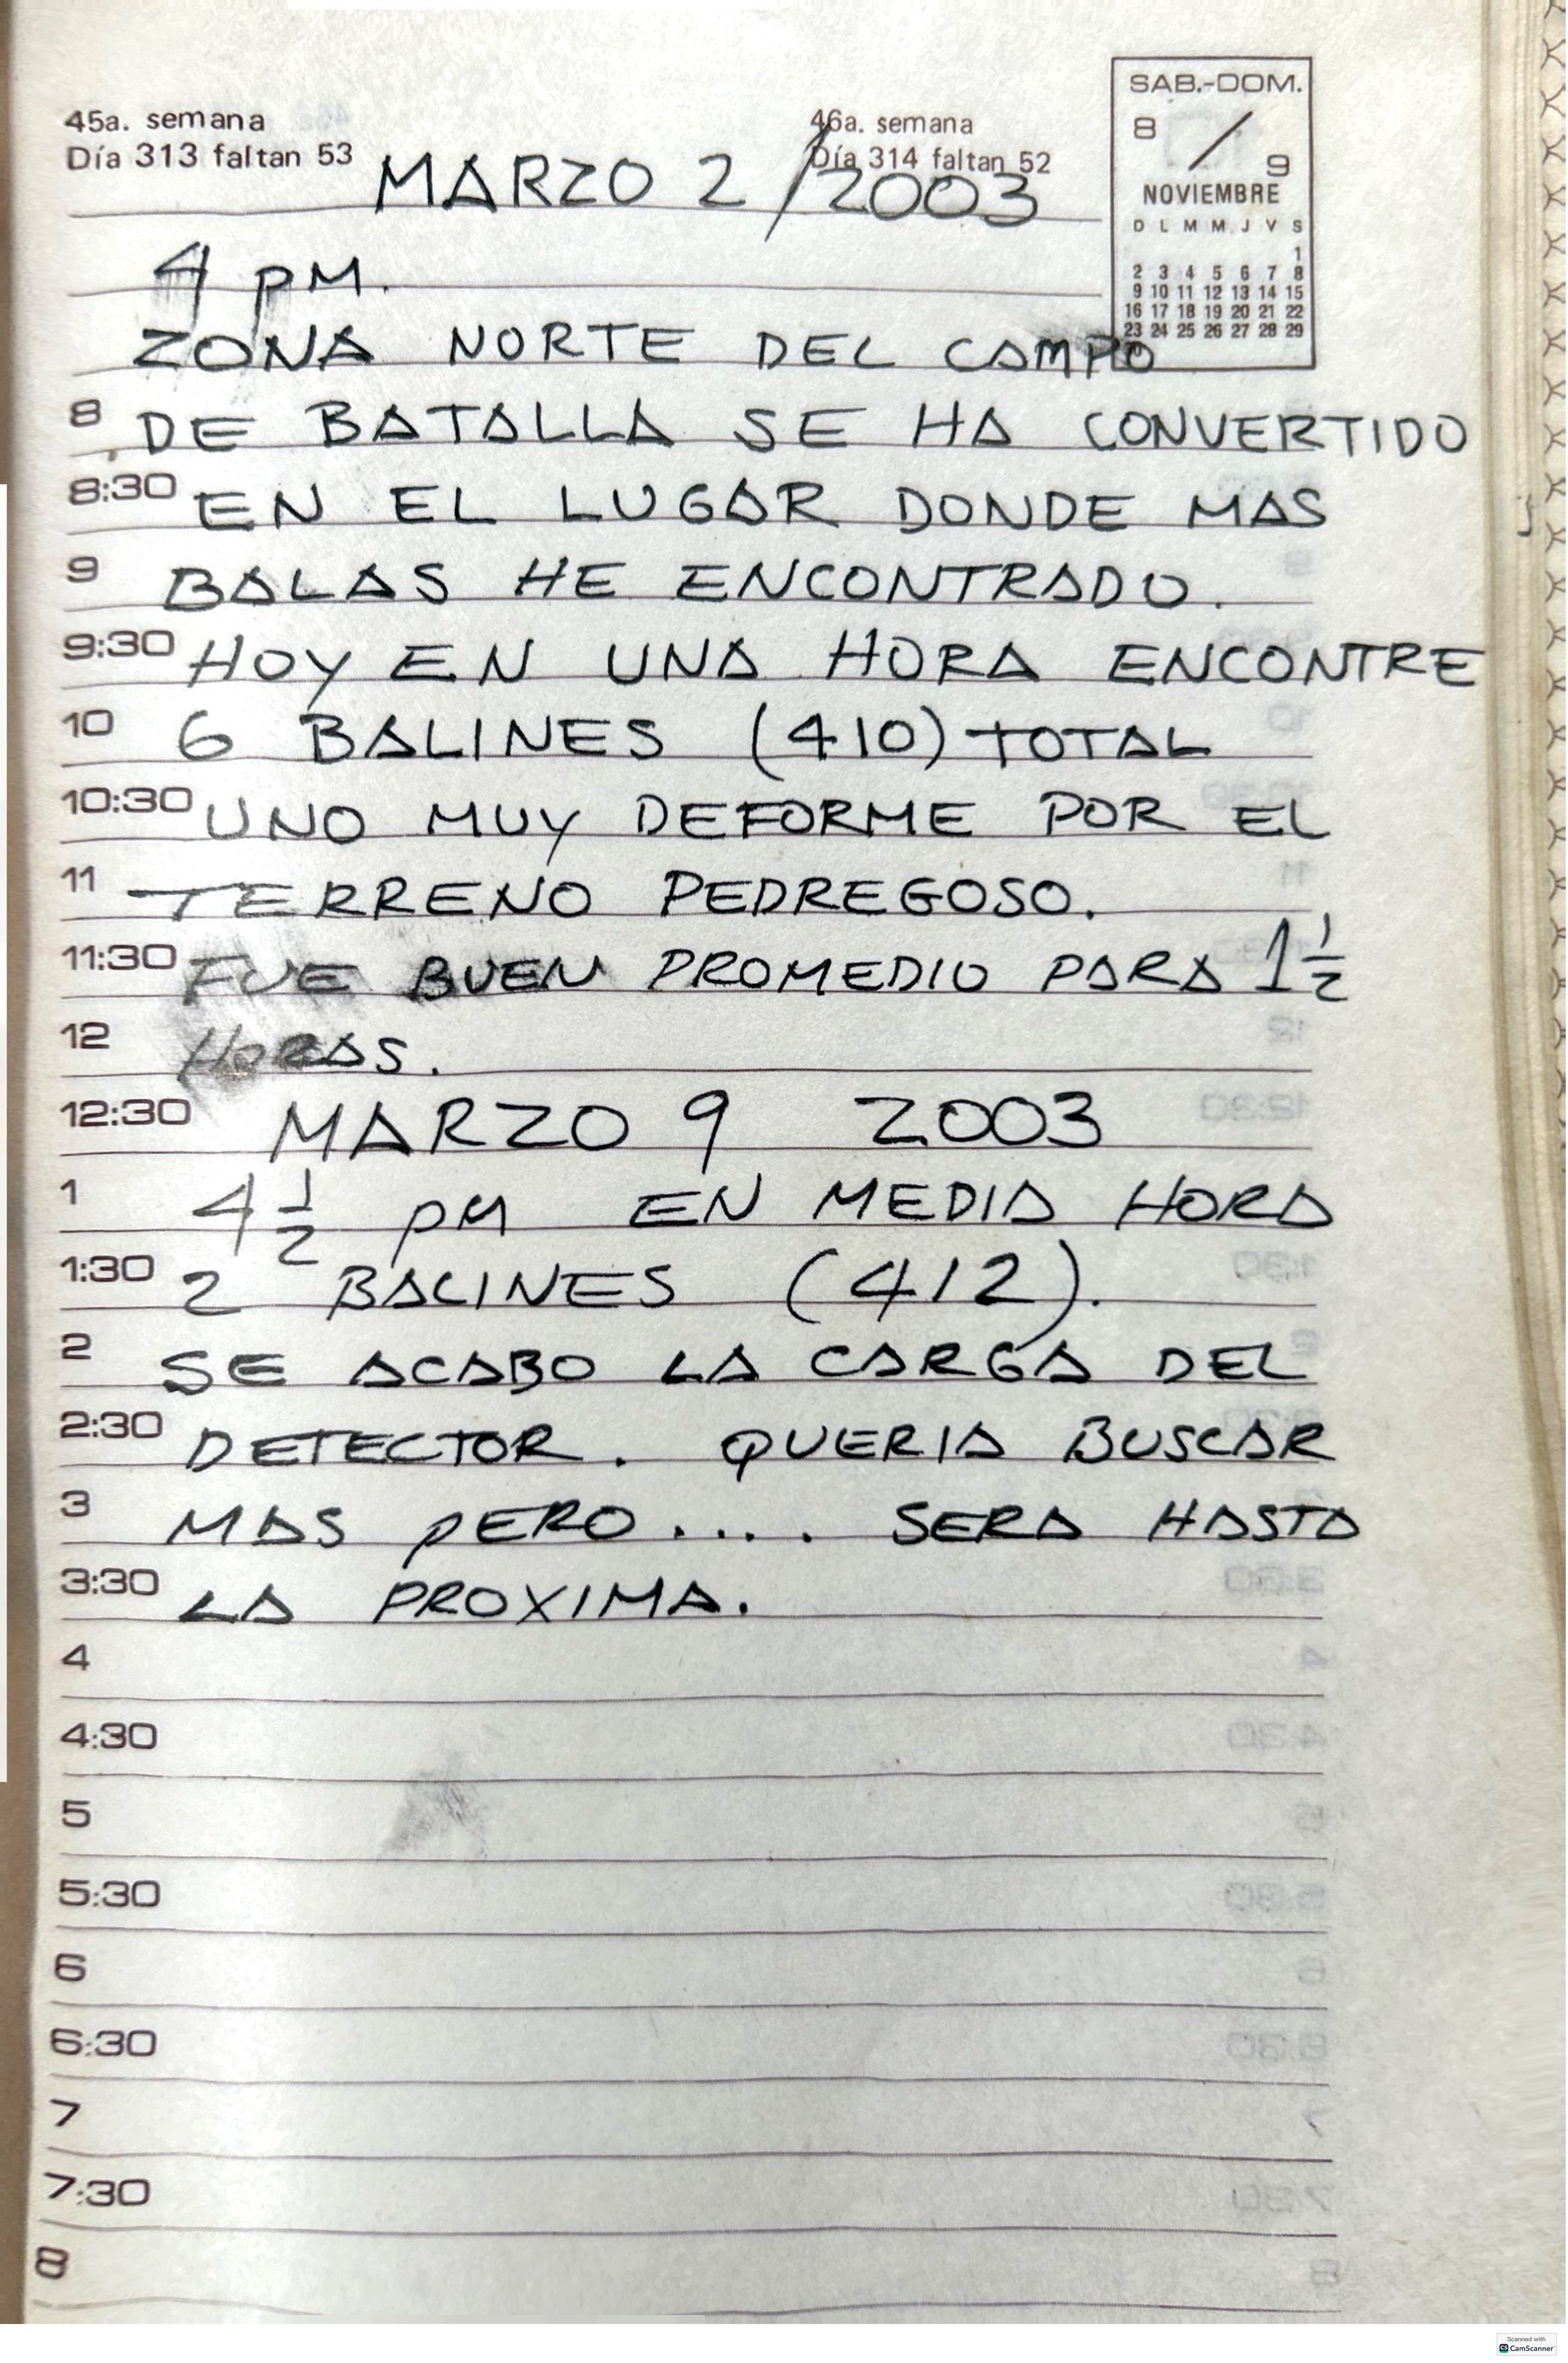 45a. semana
Día 313 faltan 53
46a. semana
Día 314 faltan 52
SAB.-DOM.
8 / 9
NOVIEMBRE
D L M M J V S
1
2 3 4 5 6 7 8
9 10 11 12 13 14 15
16 17 18 19 20 21 22
23 24 25 26 27 28 29
MARZO 2/2003
4 PM.
ZONA NORTE DEL CAMPO
8 DE BATALLA SE HA CONVERTIDO
8:30 EN EL LUGAR DONDE MAS
9 BALAS HE ENCONTRADO.
9:30 HOY EN UNA HORA ENCONTRE
10 6 BALINES (410) TOTAL
10:30 UNO MUY DEFORME POR EL
11 TERRENO PEDREGOSO.
11:30 FUE BUEN PROMEDIO PARA 1 1/2
12 HORAS.
12:30 MARZO 9 2003
1 4 1/2 PM EN MEDIA HORA
1:30 2 BALINES (412).
2 SE ACABO LA CARGA DEL
2:30 DETECTOR. QUERIA BUSCAR
3 MAS PERO.... SERA HASTA
3:30 LA PROXIMA.
4
4:30
5
5:30
6
6:30
7
7:30
8
Scanned with
CamScanner